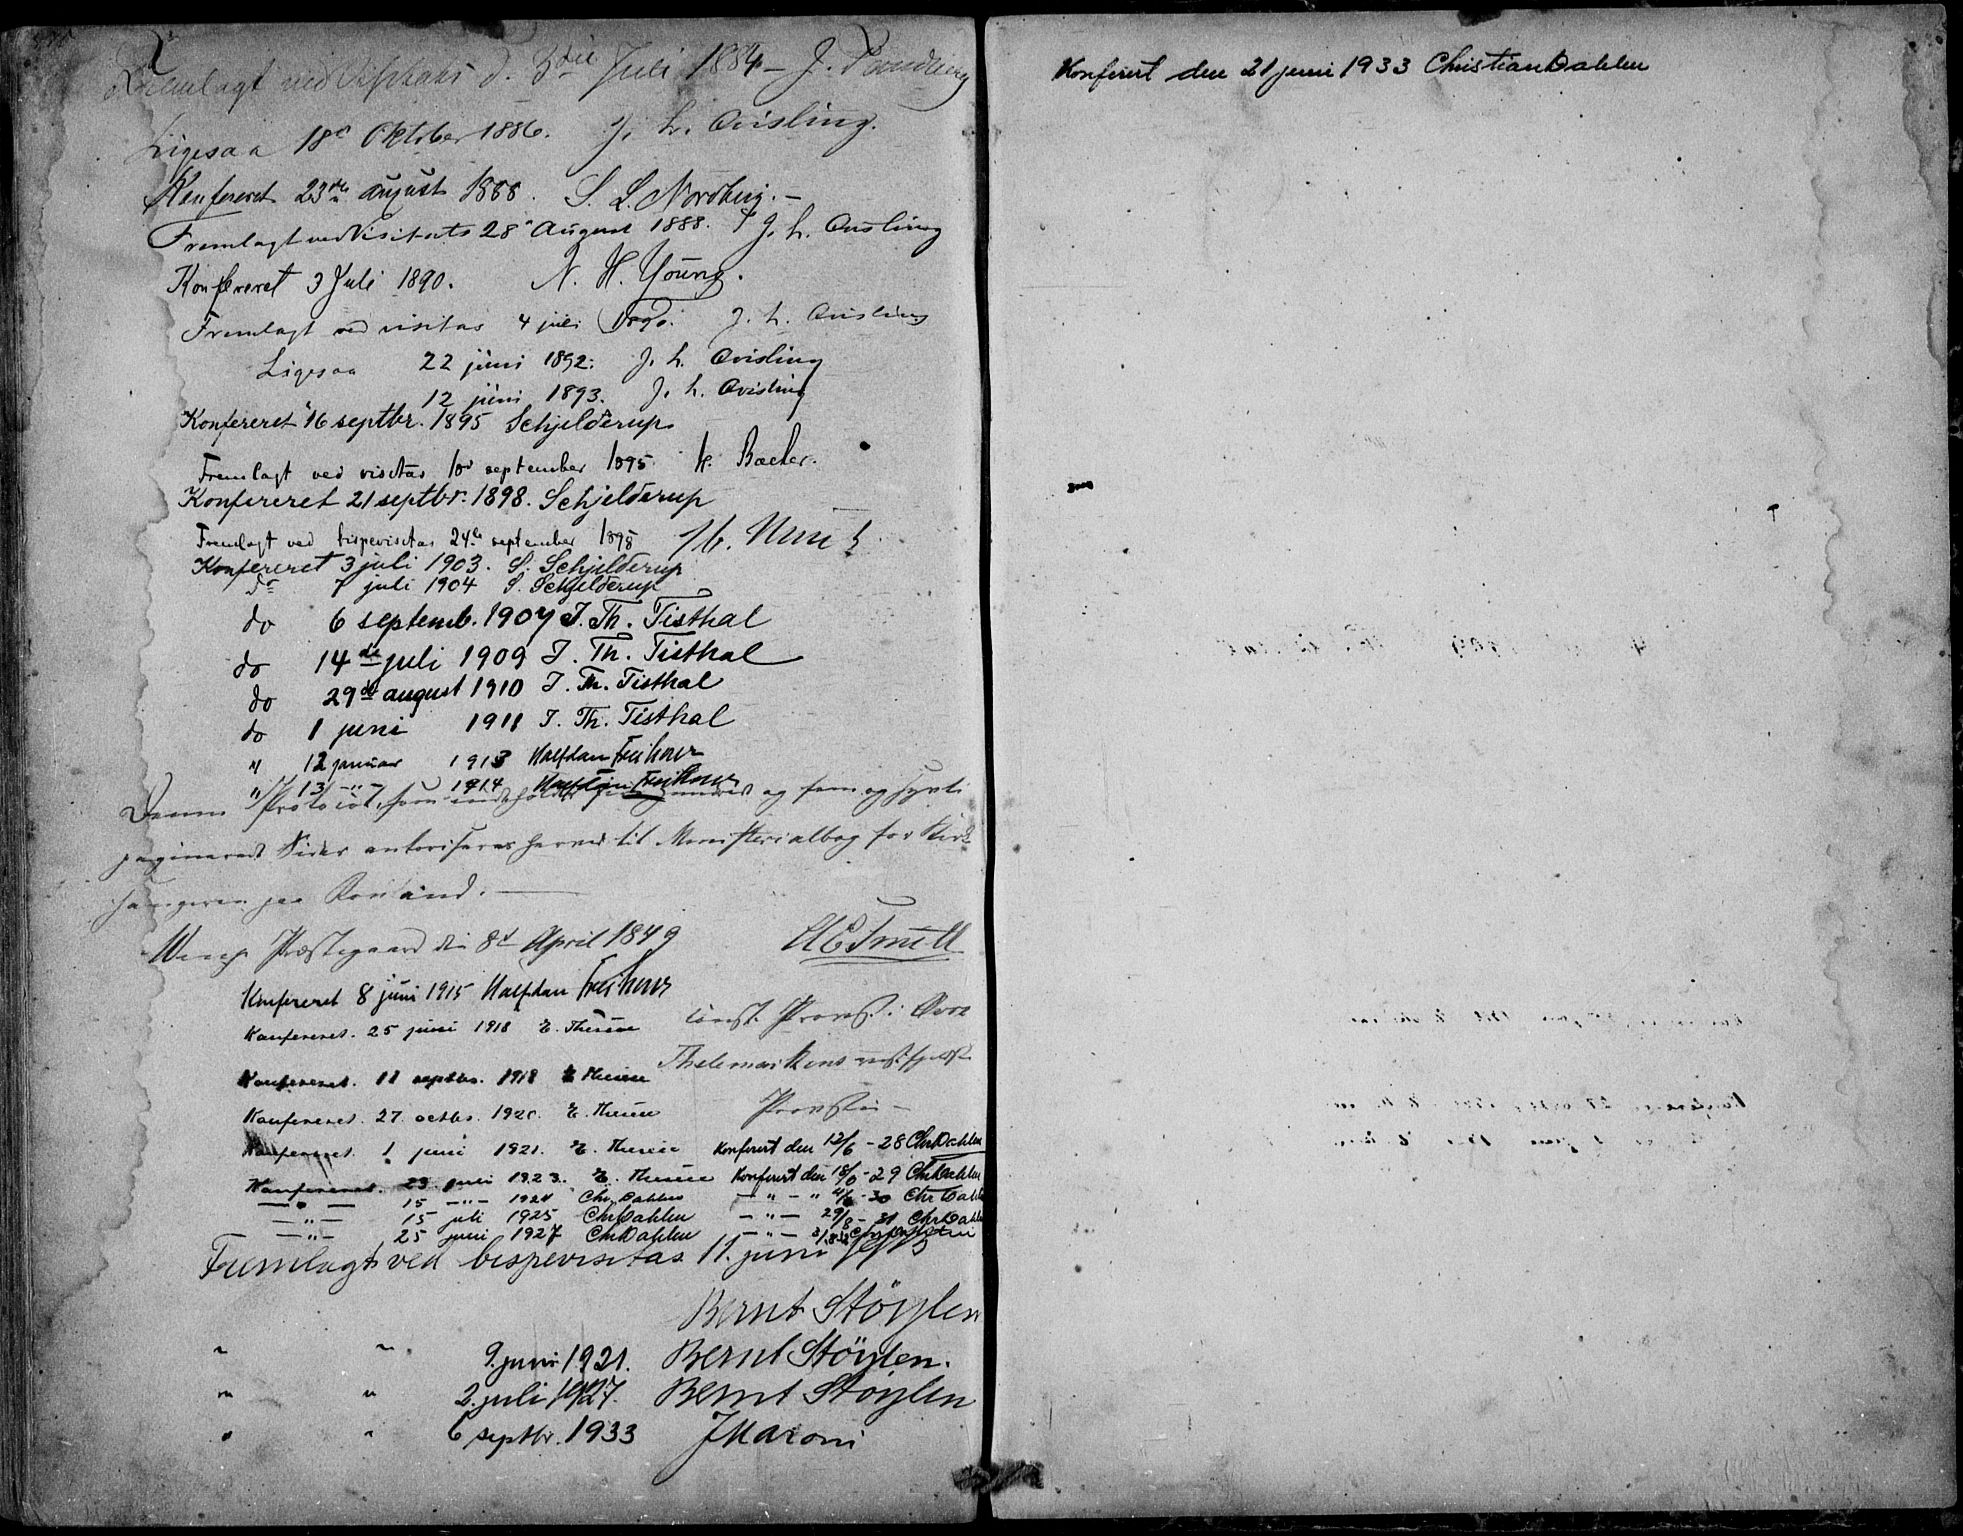 Fremlagt ved Visitats d. 3die Juli 1884 - J.
Ligesaa 18e Oktober 1886. J. L. Qvisling.
Konfereret 23de august 1888. S. L. Nordberg. -
Fremlagt ved Visitats 28 August 1888. J. L. Qvisling
Konfereret 3 Juli 1890. N. H. Young.
Fremlagt ved visitas 4 juli 1890. J. L. Qvisling
Ligesaa 22 juni 1892. J. L. Qvisling
12 juni 1893. J. L. Qvisling
Konfereret 16 septbr. 1895 Schjelderup
Fremlagt ved visitas september 1895.
Konfereret 21 septbr. 1898. Schjelderup
Fremlagt ved bispevisitas 24de september 1898
Konfereret 3 juli 1903. S. Schjelderup
do 7 juli 1904 S. Schjelderup
do 6 septemb. 1907 J. Th. Tisthal
do 14de juli 1909 J. Th. Tisthal
do 29de august 1910 J. Th. Tisthal
do 1 juni 1911 J. Th. Tisthal
" 12 januar 1913 Halfdan Freihow
" 13 -"- 1914 Halfdan Freihow
Denne Protocol, som indeholder hundrede og fem og
paginerede Sider autoriseres herved til Ministerialbog for
paa Rouland. -
Præstegaard den 8de April 1849
const. Provst i Øvre
Thelemarkens vestfjeldske
Provsti -
Konfereret 8 juni 1915 Halfdan Freihow
Konfereret. 25 juni 1918 E. Thesen
Konfereret. 11 septbr. 1918 E. Thesen
Konfereret. 27. octbr. 1920. E. Thesen
Konfereret. 1 juni 1921. E. Thesen
Konfereret. 23. juni 1923. E. Thesen
15 -"- 1924 Chr. Dahlen
-"- 15 juli 1925 Chr Dahlen
-"- 25 juni 1927 Chr Dahlen
Konferert den 12/6 - 28 Chr Dahlen
Konferert den 18/6 - 29 Chr Dahlen
-"- " - 30 Chr Dahlen
-"- 29/8 - 31 Chr Dahlen
Fremlagt ved bispevisitas 11. juni
Bernt Støylen
" " 9. juni 1921. Bernt Støylen.
" " 2. juli 1927. Bernt Støylen
" " 6 septbr. 1933 J Maroni
Konferert den 21 juni 1933 Christian Dahlen